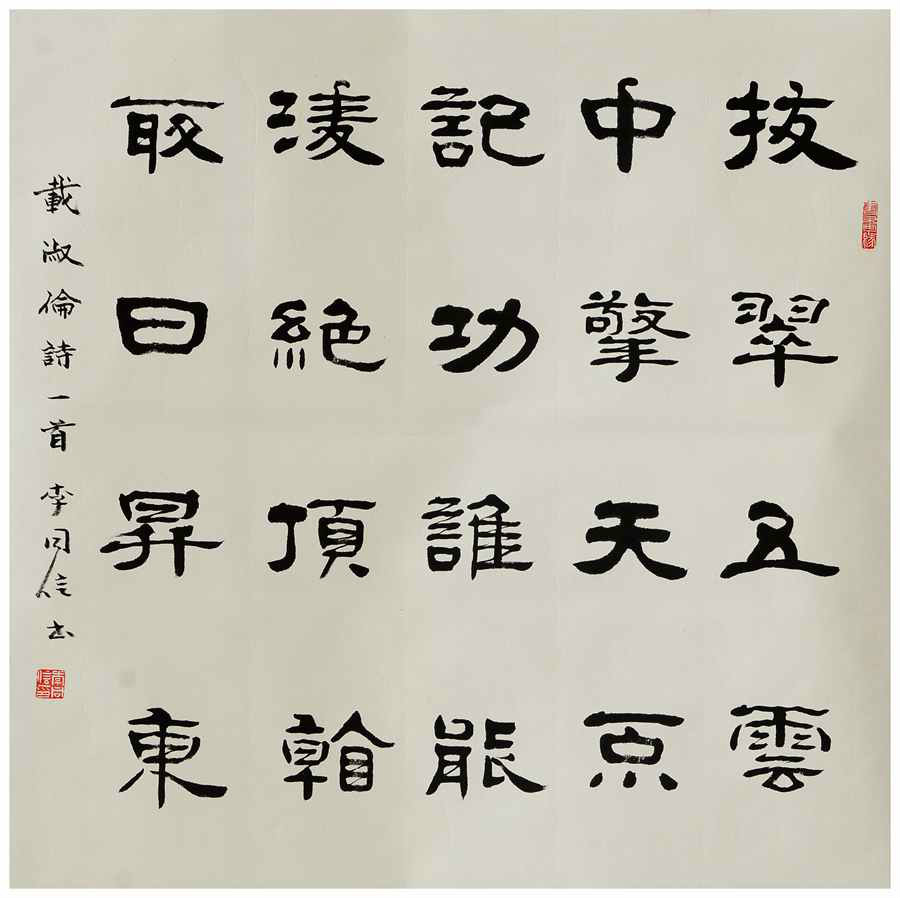 拔翠五雲
中擎天不
記功誰能
淩絕頂看
取日昇東
載淑倫詩一首 李同信书